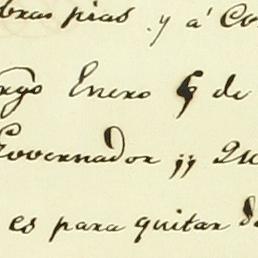 obras pias y á Co
rgo Enero 6 de
Governador ,, Qu
es para quitar d